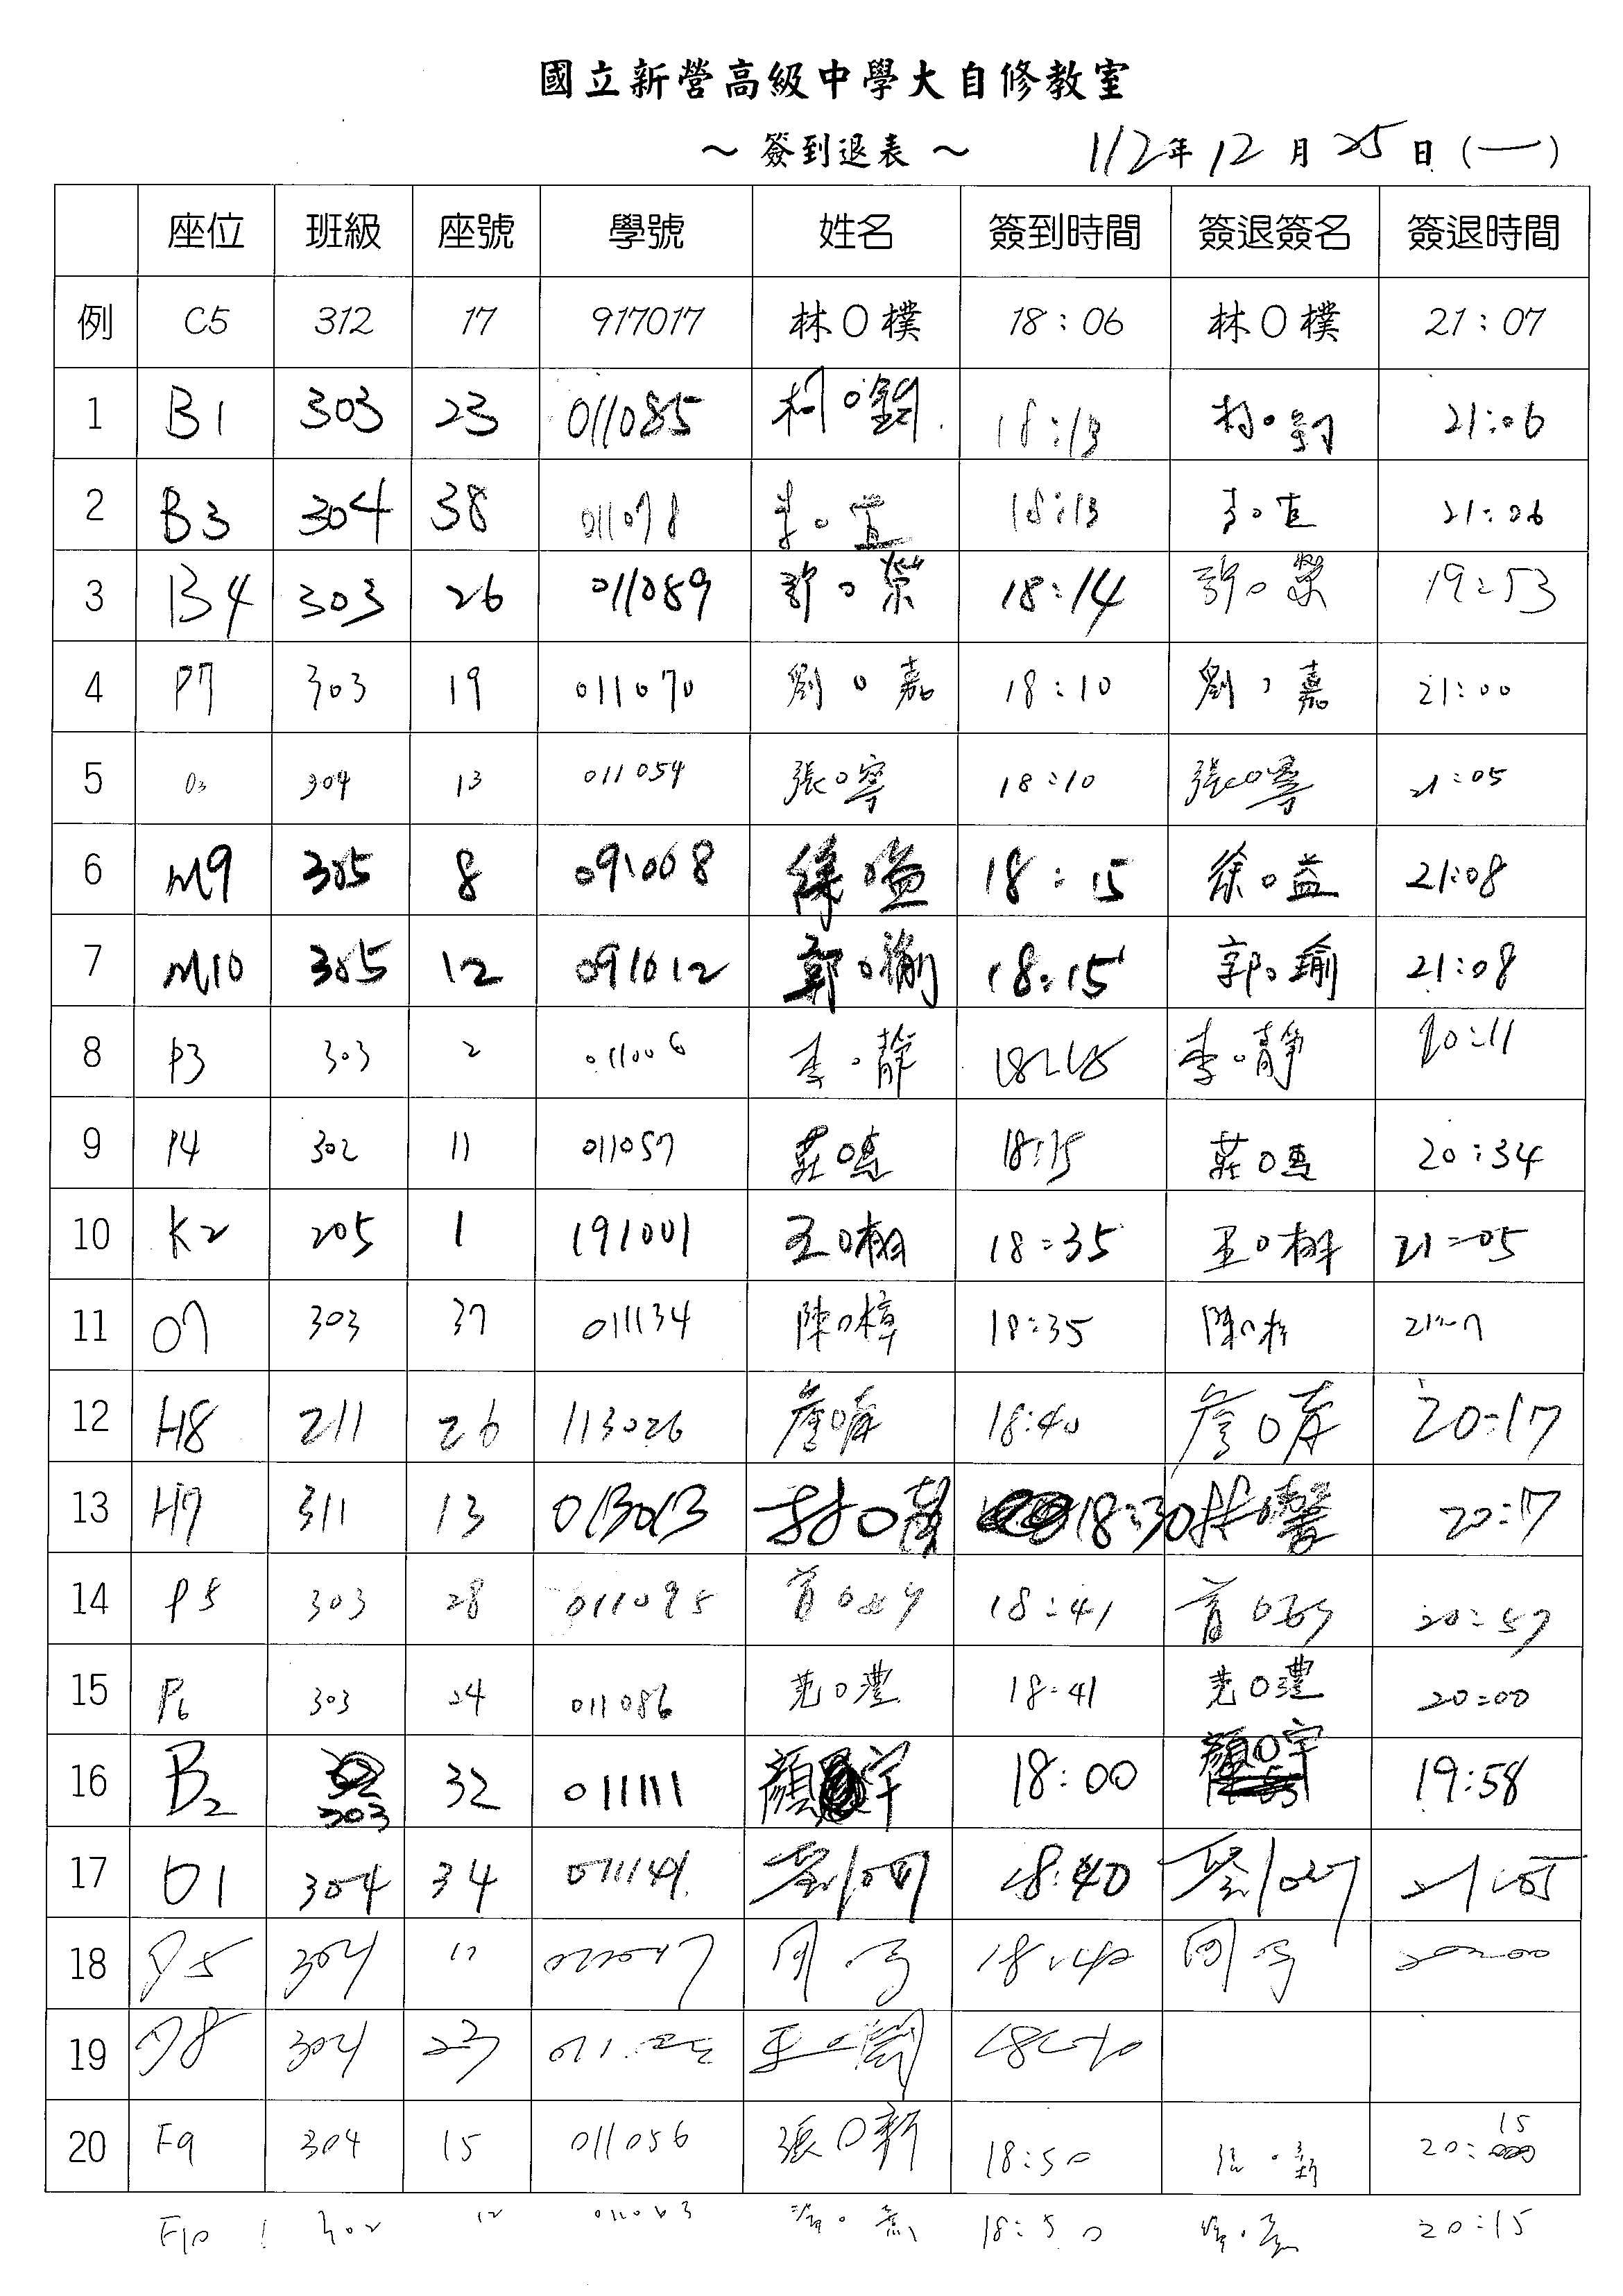 國立新營高級中學大自修教室
～ 簽到退表 ～ 112年12月25日(一)
座位 班級 座號 學號 姓名 簽到時間 簽退簽名 簽退時間
例 C5 312 17 917017 林O樸 18:06 林O樸 21:07
1 B1 303 23 011085 柯O鈞 18:13 柯O鈞 21:06
2 B3 304 38 011078 李O宜 18:13 李O宜 21:06
3 B4 303 26 011089 許O榮 18:14 許O榮 19:53
4 P7 303 19 011070 劉O嘉 18:10 劉O嘉 21:00
5 O3 304 13 011054 張O寧 18:10 張O寧 21:05
6 M9 305 8 091008 徐O益 18:15 徐O益 21:08
7 M10 305 12 091012 郭O瑜 18:15 郭O瑜 21:08
8 P3 303 2 011006 李O靜 18:18 李O靜 20:11
9 P4 302 11 011057 莊O恵 18:15 莊O恵 20:34
10 K2 205 1 191001 王O栩 18:35 王O栩 21:05
11 O7 303 37 011134 陳O樟 18:35 陳O 21:07
12 H8 211 26 113026 詹O 18:40 詹O 20:17
13 H9 311 13 013013 林O馨 18:30 林O馨 20:17
14 P5 303 28 011095 18:41 20:57
15 P6 303 24 011086 O澧 18:41 O澧 20:00
16 B2 303 32 011111 顏 宇 18:00 顏O宇 19:58
17 O1 304 34 011141 劉O 18:40 劉O 21:05
18 304 17 周O 18:40 周O 20:00
19 304 23 王O
20 F9 304 15 011056 張O新 18:50 張O新 20:15
F10 302 12 18:50 20:15